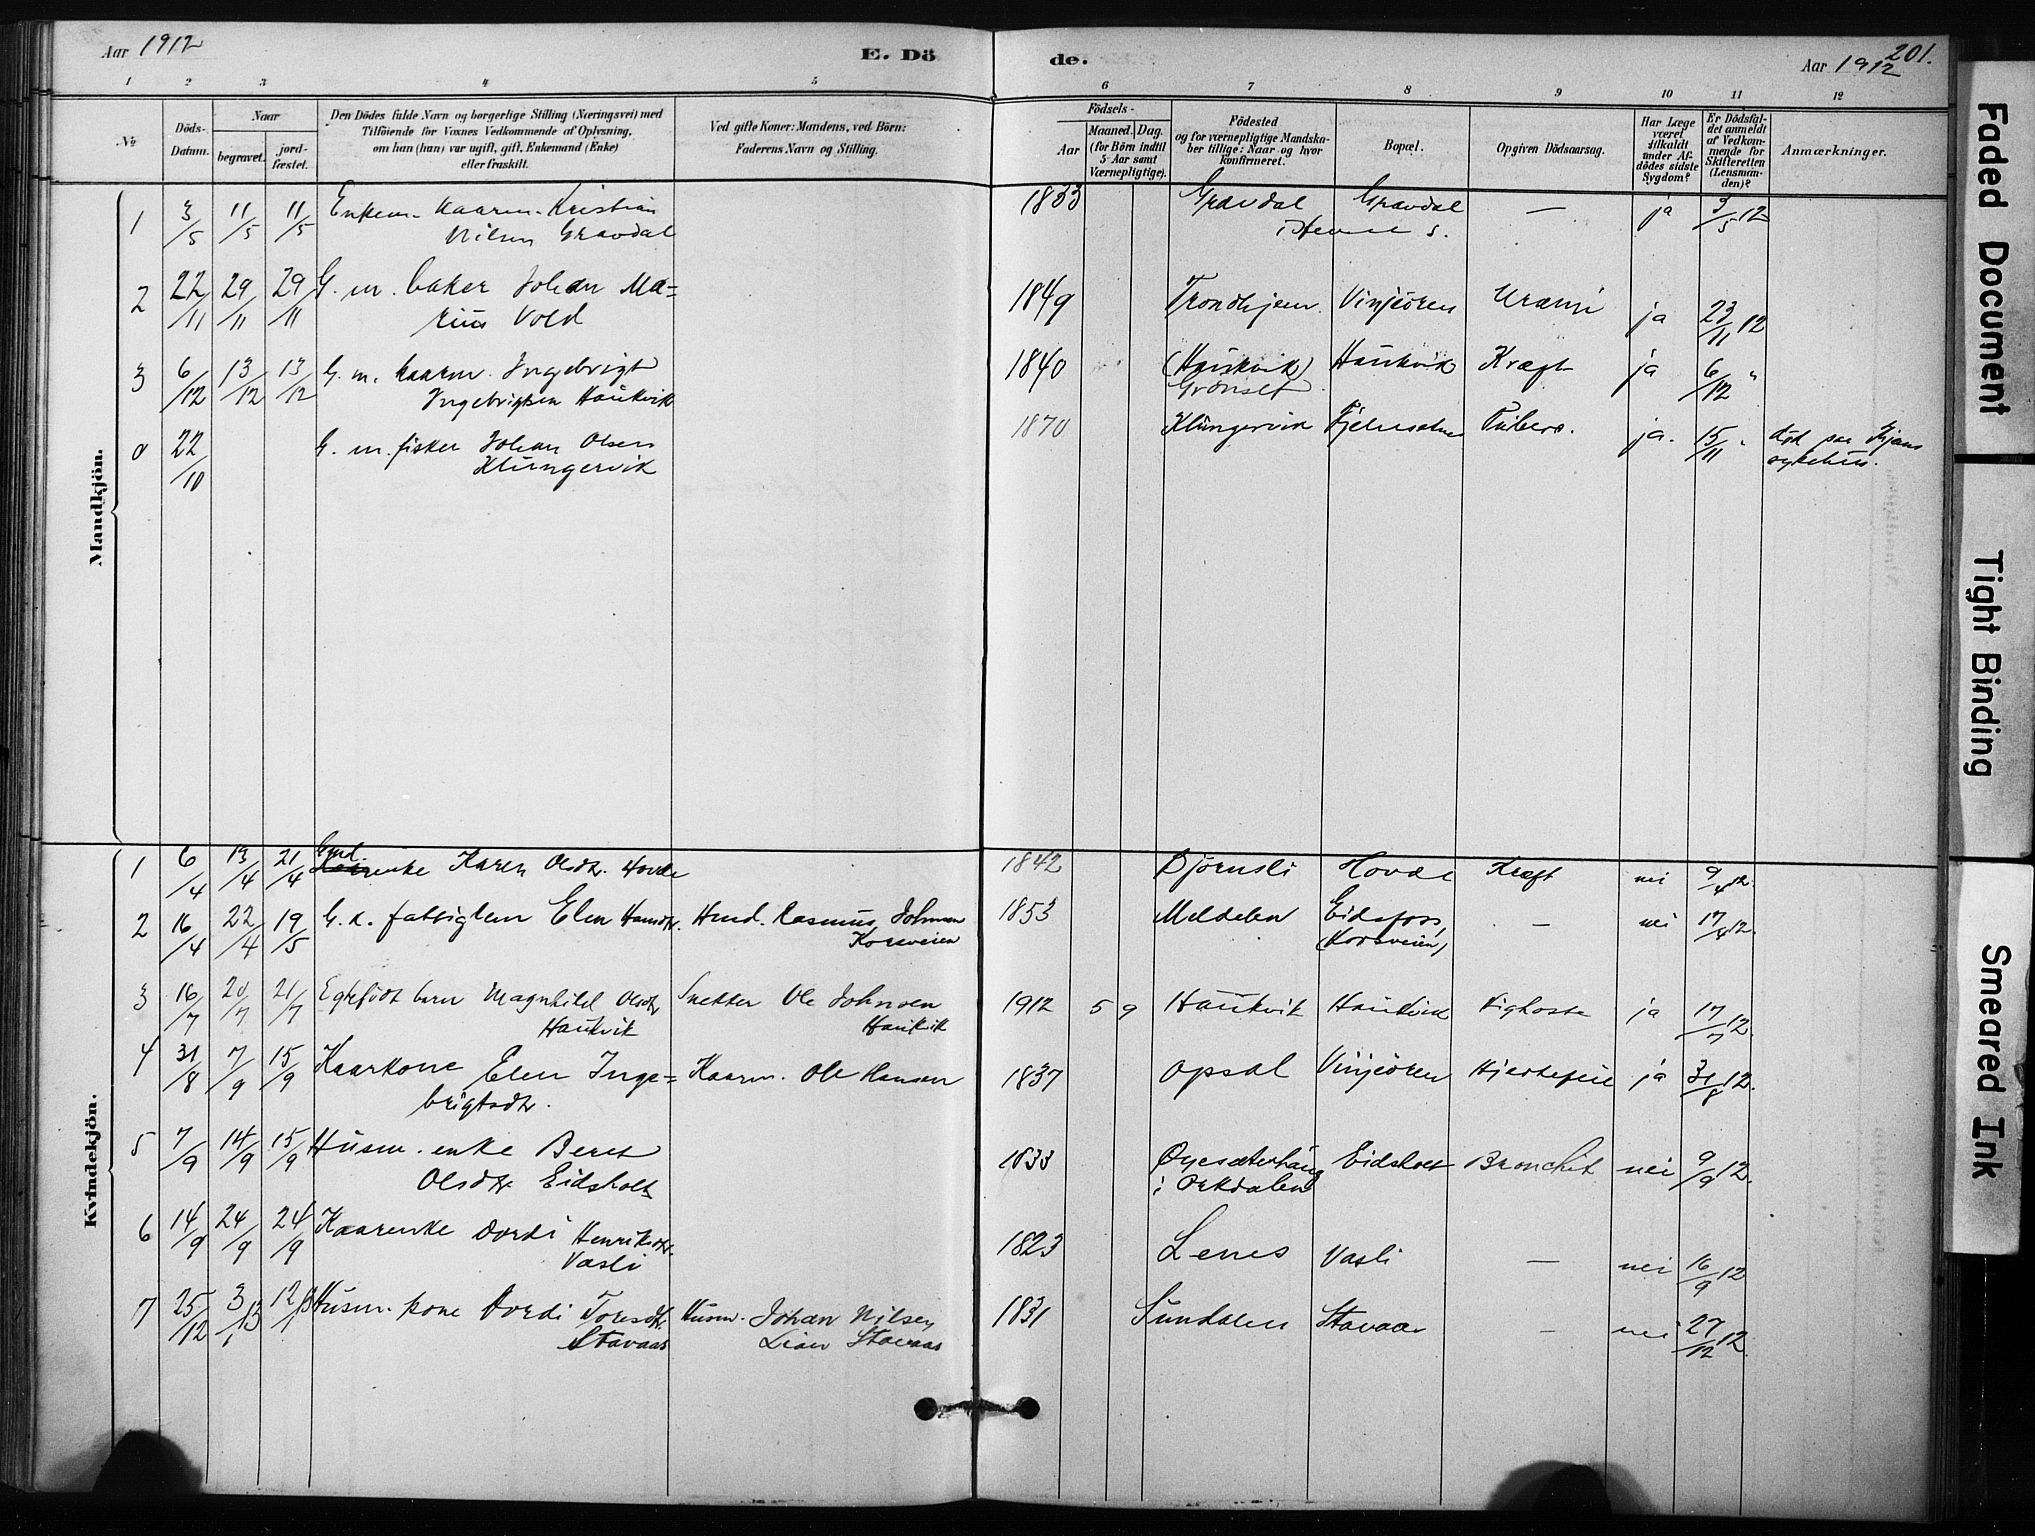 Aar 1912
E. Dö
de.
Aar 1912
201.
1 2 3 4 5 6 7 8 9 10 11 12
№
Döds-
Datum.
Naar
begravet.
jord-
fæstet.
Den Dödes fulde Navn og borgerlige Stilling (Næringsvei) med
Tilföiende for Voxnes Vedkommende af Oplysning,
om han (hun) var ugift, gift, Enkemand (Enke)
eller fraskilt.
Ved gifte Koner: Mandens, ved Börn:
Faderens Navn og Stilling.
Födsels-
Aar
Maaned. Dag.
(for Börn indtil
5 Aar samt
Værnepligtige).
Födested
og for værnepligtige Mandska-
ber tillige: Naar og hvor
konfirmeret.
Bopæl.
Opgiven Dödsaarsag.
Har Læge
været
tilkaldt
under Af-
dödes sidste
Sygdom?
Er Dödsfal-
det anmeldt
af Vedkom-
mende for
Skifteretten
(Lensman-
den)?
Anmærkninger.
Mandkjön.
1 3/5 11/5 11/5 Enkem. kaarm. Kristian 1833 Gravdal Gravdal — ja 3/5 12
Nilsen Gravdal i Hevne s.
2 22/11 29/11 29/11 G. m. baker Johan Ma= 1849 Trondhjem Vinjeören Urämi ja 23/11 12
rius Vold
3 6/12 13/12 13/12 G. m. kaarm. Ingebrigt 1840 (Haukvik) Haukvik Kræft ja 6/12 "
Ingebrigtsen Haukvik Grönset
0 22/10 G. m. fisker Johan Olsen 1870 Klungervik ja. 15/11 " död paa
Klungervik sykehus.
Kvindekjön.
1 6/4 13/4 21/4 Gmd.
enke Karen Olsdtr. Hovde 1842 Björnsli Hovde Kræft nei 9/4 12.
2 16/4 22/4 19/5 G. k. fattiglem Elen Hansdtr. Hmd. Rasmus Johnsen 1853 Meldalen Eidsfoss — nei 17/4 12.
Korsveien (Korsveien)
3 16/7 20/7 21/7 Egtefödt barn Magnhild Olsdtr Snekker Ole Johnsen 1912 5 9 Haukvik Haukvik Kighoste ja 17/7 12.
Haukvik Haukvik
4 31/8 7/9 15/9 Kaarkone Elen Inge= Kaarm. Ole Hansen 1837 Opsal Vinjeören Hjertefeil ja 31/8 12.
brigtsdtr.
5 7/9 14/9 15/9 Husm. enke Beret 1833 Öyesæterhaug Eidsholt Bronchit nei 9/9 12.
Olsdtr Eidsholt i Orkdalen
6 14/9 24/9 24/9 Kaarenke Dordi Henriksdtr. 1823 Lenes Vasli — nei 16/9 12
Vasli
7 25/12 3/1 13 12/1 13 Husm. kone Dordi Toresdtr. Husm. Johan Nilsen 1831 Sundalen Stavaas — nei 27/12 12.
Stavaas Lian Stavaas
Faded Document
Tight Binding
Smeared Ink